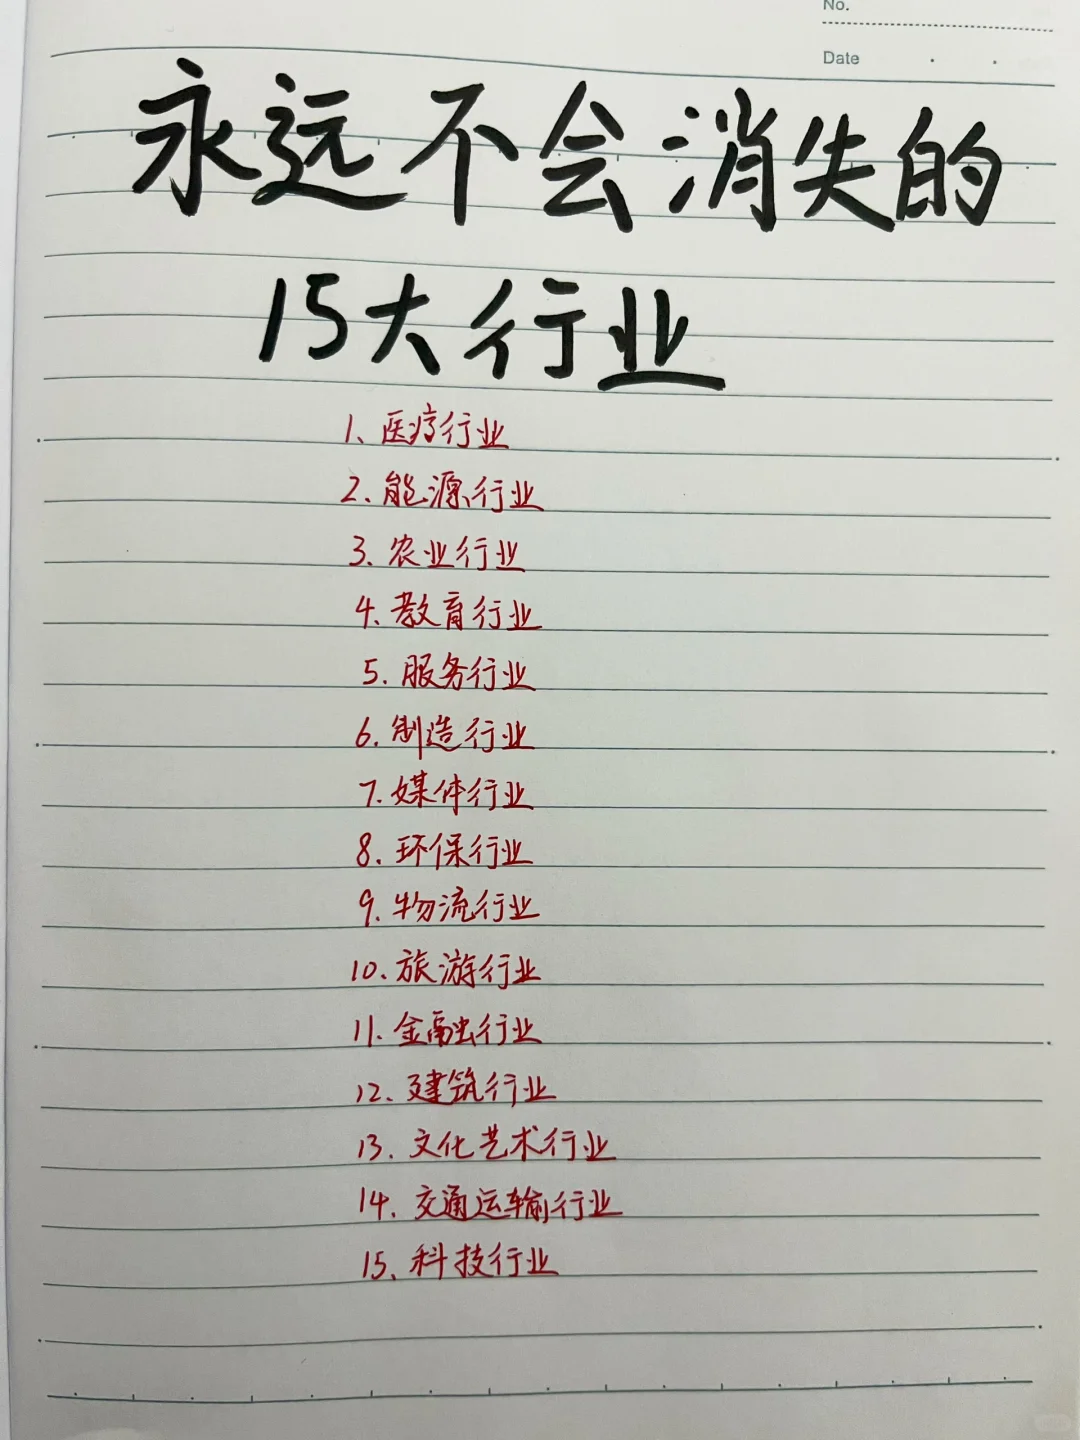 No.
Date
永远不会消失的
15大行业
1、医疗行业
2、能源行业
3、农业行业
4、教育行业
5、服务行业
6、制造行业
7、媒体行业
8、环保行业
9、物流行业
10、旅游行业
11、金融行业
12、建筑行业
13、文化艺术行业
14、交通运输行业
15、科技行业